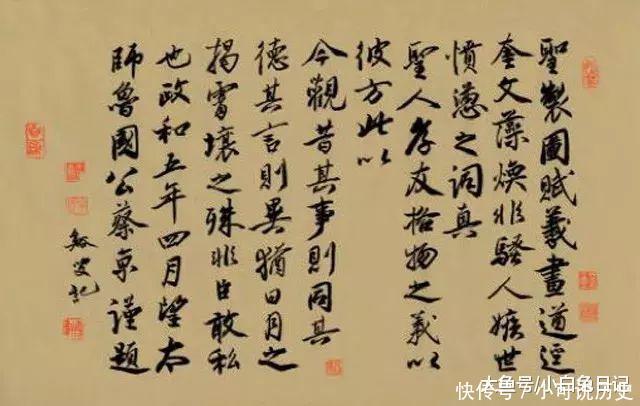 聖製圖賦羲畫道逕
奎文藻煥非騷人嫉世
憤懣之詞真
聖人孝友格物之義以
彼方此以
今觀昔其事則同其
德其言則異猶日月之
揭霄壤之殊非臣敢私
也政和五年四月望太
師魯國公蔡京謹題
叟記
大鱼号/小白兔日记
快传号/小可说历史